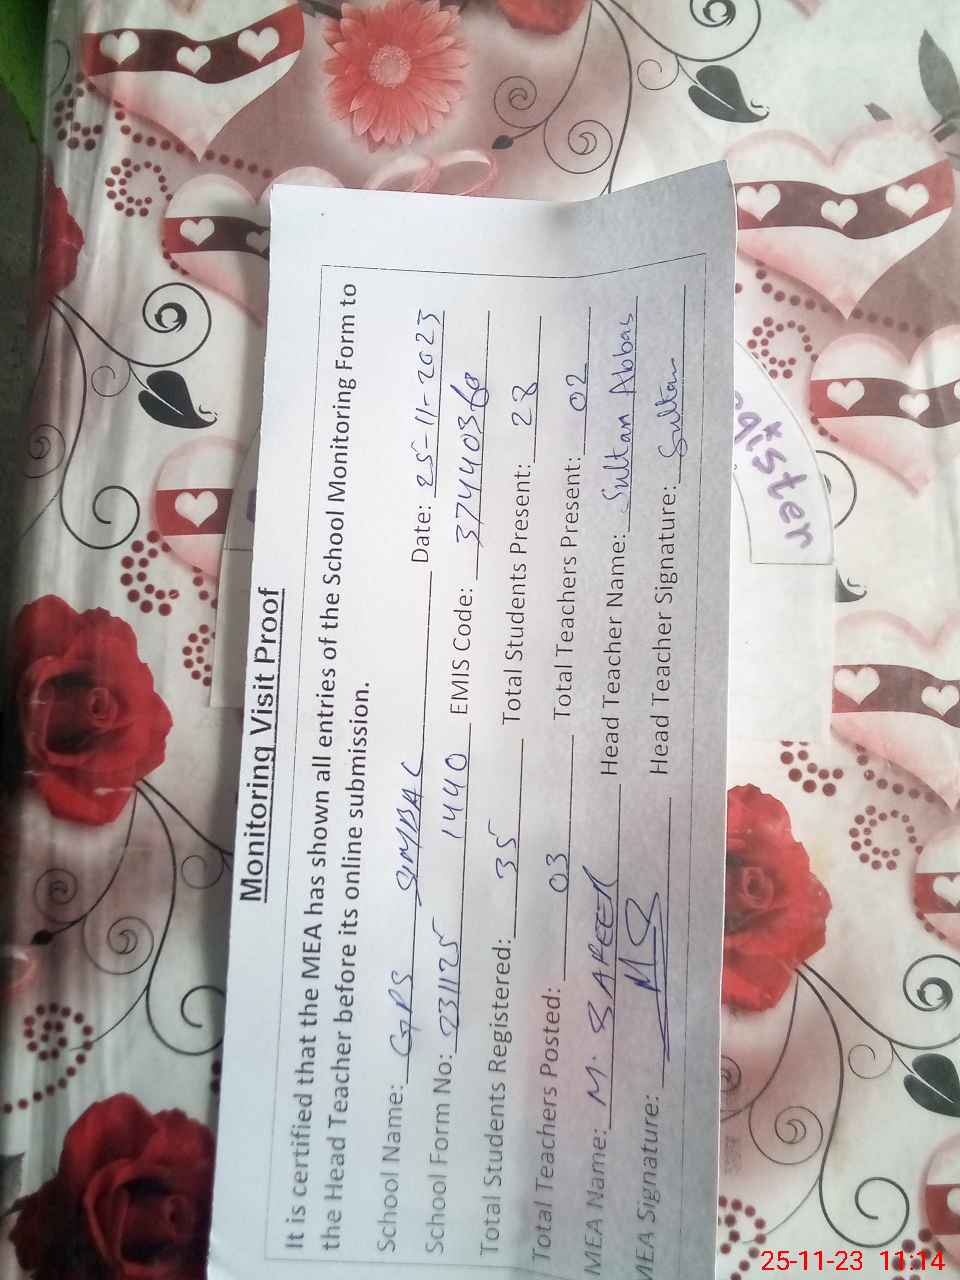 Monitoring Visit Proof
It is certified that the MEA has shown all entries of the School Monitoring Form to
the Head Teacher before its online submission.
School Name: GPS SIMBAL Date: 25-11-2023
School Form No: 231125 1440 EMIS Code: 37440360
Total Students Registered: 35 Total Students Present: 28
Total Teachers Posted: 03 Total Teachers Present: 02
MEA Name: M. SAFEER Head Teacher Name: Sultan Abbas
MEA Signature: MS Head Teacher Signature: Sultan
25-11-23 11:14